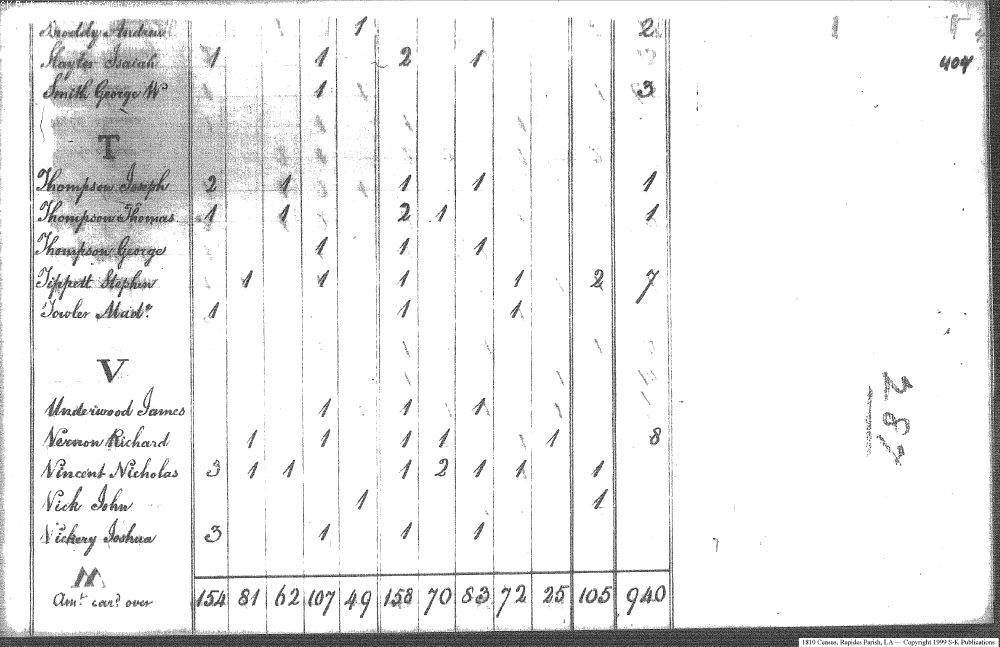 Andrew 1 2
Slayter Isaiah 1 1 2 1
407
Smith George W 1 3
T
Thompson Joseph 2 1 1 1 1
Thompson Thomas 1 1 2 1 1
Thompson George 1 1 1
Tippett Stephen 1 1 1 1 2 7
Towler Mad. 1 1 1
V
287
Underwood James 1 1 1
Vernon Richard 1 1 1 1 1 8
Vincent Nicholas 3 1 1 1 2 1 1 1
Vick John 1 1
Vickery Joshua 3 1 1 1
Amt. card. over 154 81 62 107 49 158 70 83 72 25 105 940
1810 Census, Rapides Parish, LA — Copyright 1999 S-K Publications